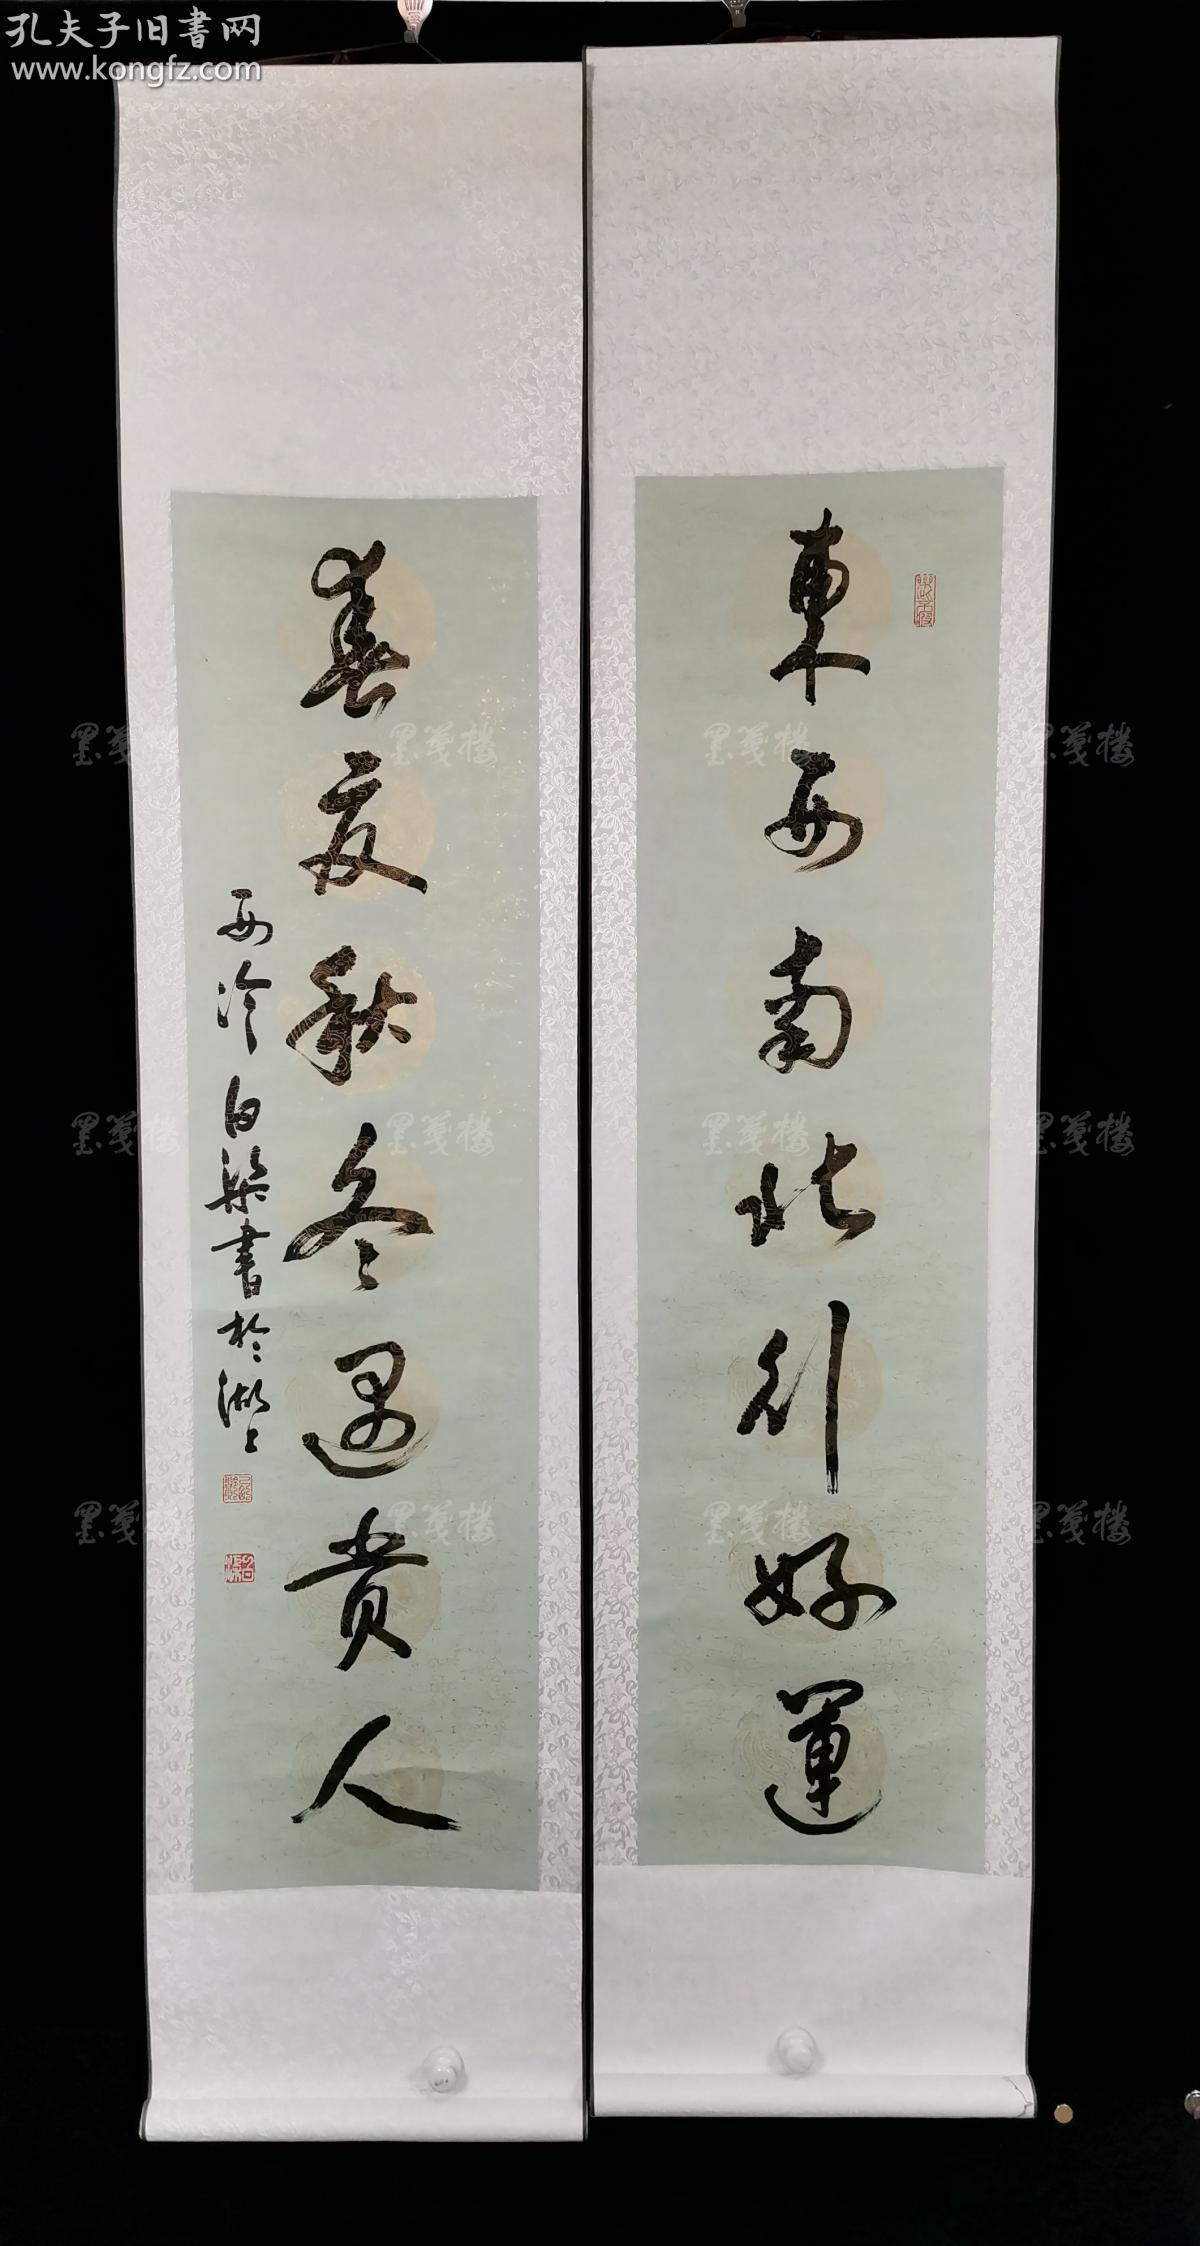 孔夫子旧書网
www.kongfz.com
東西南北行好運
春夏秋冬遇貴人
西泠白梁書於湖上
墨箋樓
墨箋樓
墨箋樓
墨箋樓
墨箋樓
墨箋樓
墨箋樓
墨箋樓
墨箋樓
墨箋樓
墨箋樓
墨箋樓